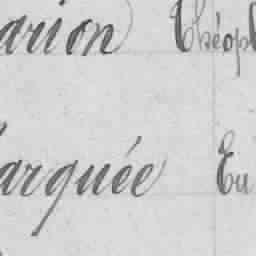 arion Théopl
arquée Eu